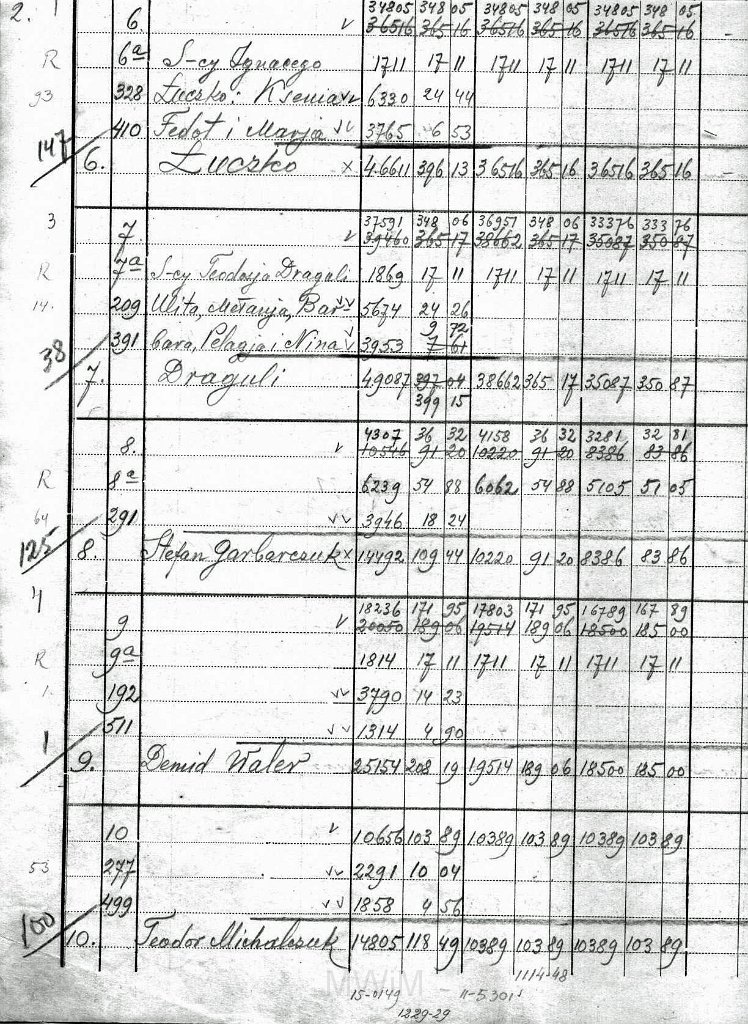 2. 34805 348 05 34805 348 05 34805 348 05
6. v 36516 365 16 36516 365 16 36516 365 16 -
R 6a S-cy Ignacego 1711 17 11 1711 17 11 1711 17 11
93 328 Łuczko: Ksenia vv 6330 24 44
410 Fedot i Marja vv 3765 6 53
147 6. Łuczko x 46611 396 13 36516 365 16 36516 365 16 -
3 37591 348 06 36951 348 06 33376 333 76
7 v 39460 365 17 38662 365 17 35087 350 87
R 7a S-cy Teodozja Draguli 1869 17 11 1711 17 11 1711 17 11
14. 209 Ulita, Mełanja, Bar- vv 5674 24 26
9 72
38 391 bara, Pelagja i Nina vv 3953 7 61
7. Draguli 49087 397 04 38662 365 17 35087 350 87
399 15
4307 36 32 4158 36 32 3281 32 81
8. v 10546 91 20 10220 91 20 8386 83 86
R 8a 6239 54 88 6062 54 88 5105 51 05
64 291 vv 3946 18 24
125 8. Stefan Garbarczuk x 14492 109 44 10220 91 20 8386 83 86
4 18236 171 95 17803 171 95 16789 167 89
9 v 20050 189 06 19514 189 06 18500 185 00
R 9a 1814 17 11 1711 17 11 1711 17 11
1. 192 vv 3790 14 23
511 vv 1314 4 90
1 9. Demid Waler 25154 208 19 19514 189 06 18500 185 00
10 v 10656 103 89 10389 103 89 10389 103 89
53 277 vv 2291 10 04
499 vv 1858 4 56
100 10. Teodor Michalczuk 14805 118 49 10389 103 89 10389 103 89
1114-48
MWiM
15-0149 11-5301
1229-29